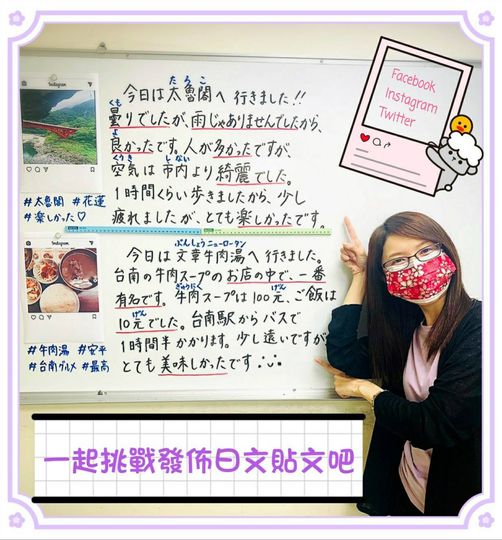 Facebook
Instagram
Twitter
Instagram
#太魯閣 #花蓮
#楽しかった♡
たろこ
今日は太魯閣へ 行きました!!
くも
曇りでしたが、雨じゃありませんでしたから、
よ
良かったです。人が多かったですが、
くうき しない
空気は市内より綺麗でした。
1時間くらい歩きましたから、少し
疲れましたが、とても楽しかったです。
Instagram
#牛肉湯 #安平
#台南グルメ #最高
ぶんしょうニューロータン
今日は文章牛肉湯へ行きました。
台南の牛肉スープのお店の中で、一番
ぎゅうにく げん
有名です。牛肉スープは100元、ご飯は
げん
10元でした。台南駅からバスで
1時間半かかります。少し遠いですが
とても美味しかったです
一起挑戰發佈日文貼文吧